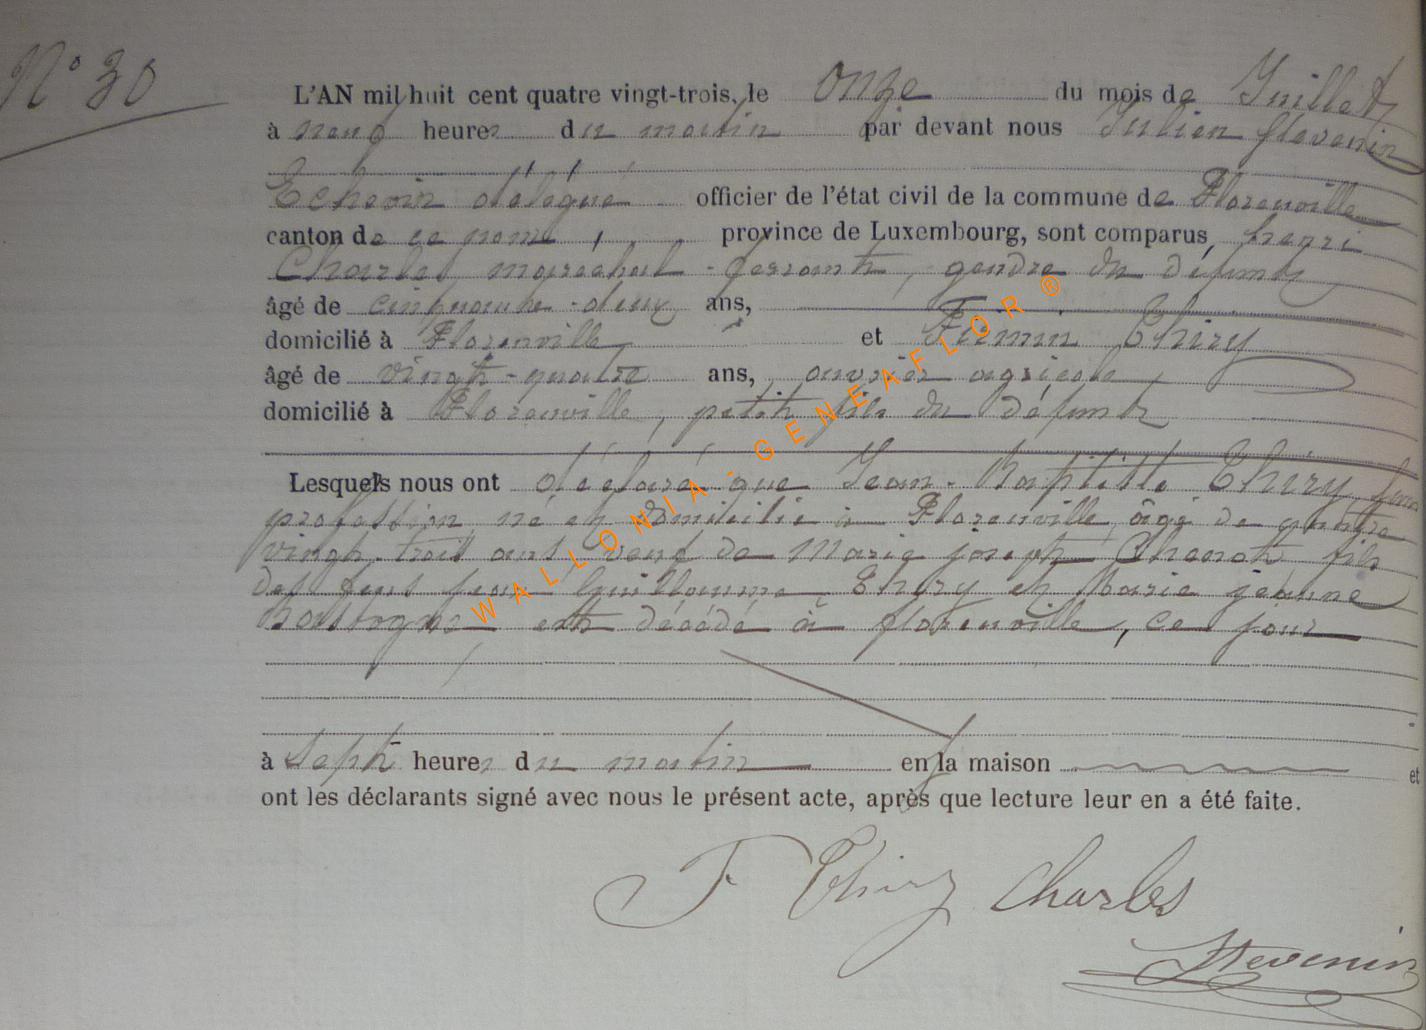 N° 30
L'AN mil huit cent quatre vingt-trois, le onze du mois de Juillet
à neuf heures du matin par devant nous Julien Stevenin
Echevin délégué officier de l'état civil de la commune de Florenville
canton de ce nom, province de Luxembourg, sont comparus, henri
Charles, marechal-ferrant, gendre du défunt
âgé de cinquante-deux ans,
domicilié à Florenville et Firmin Thiry
âgé de vingt-quatre ans, ouvrier agricole
domicilié à Florenville, petit fils du défunt
Lesquels nous ont déclaré que Jean-Baptiste Thiry, sans
profession, né et domicilié à Florenville, âgé de quatre
vingt-trois ans, veuf de Marie joseph fils
des feus Guillaume Thiry et Marie jeanne
est décédé à florenville, ce jour
à sept heures du matin en la maison et
ont les déclarants signé avec nous le présent acte, après que lecture leur en a été faite.
F. Thiry Charles
Stevenin
WALLONIA-GENEAFLOR®